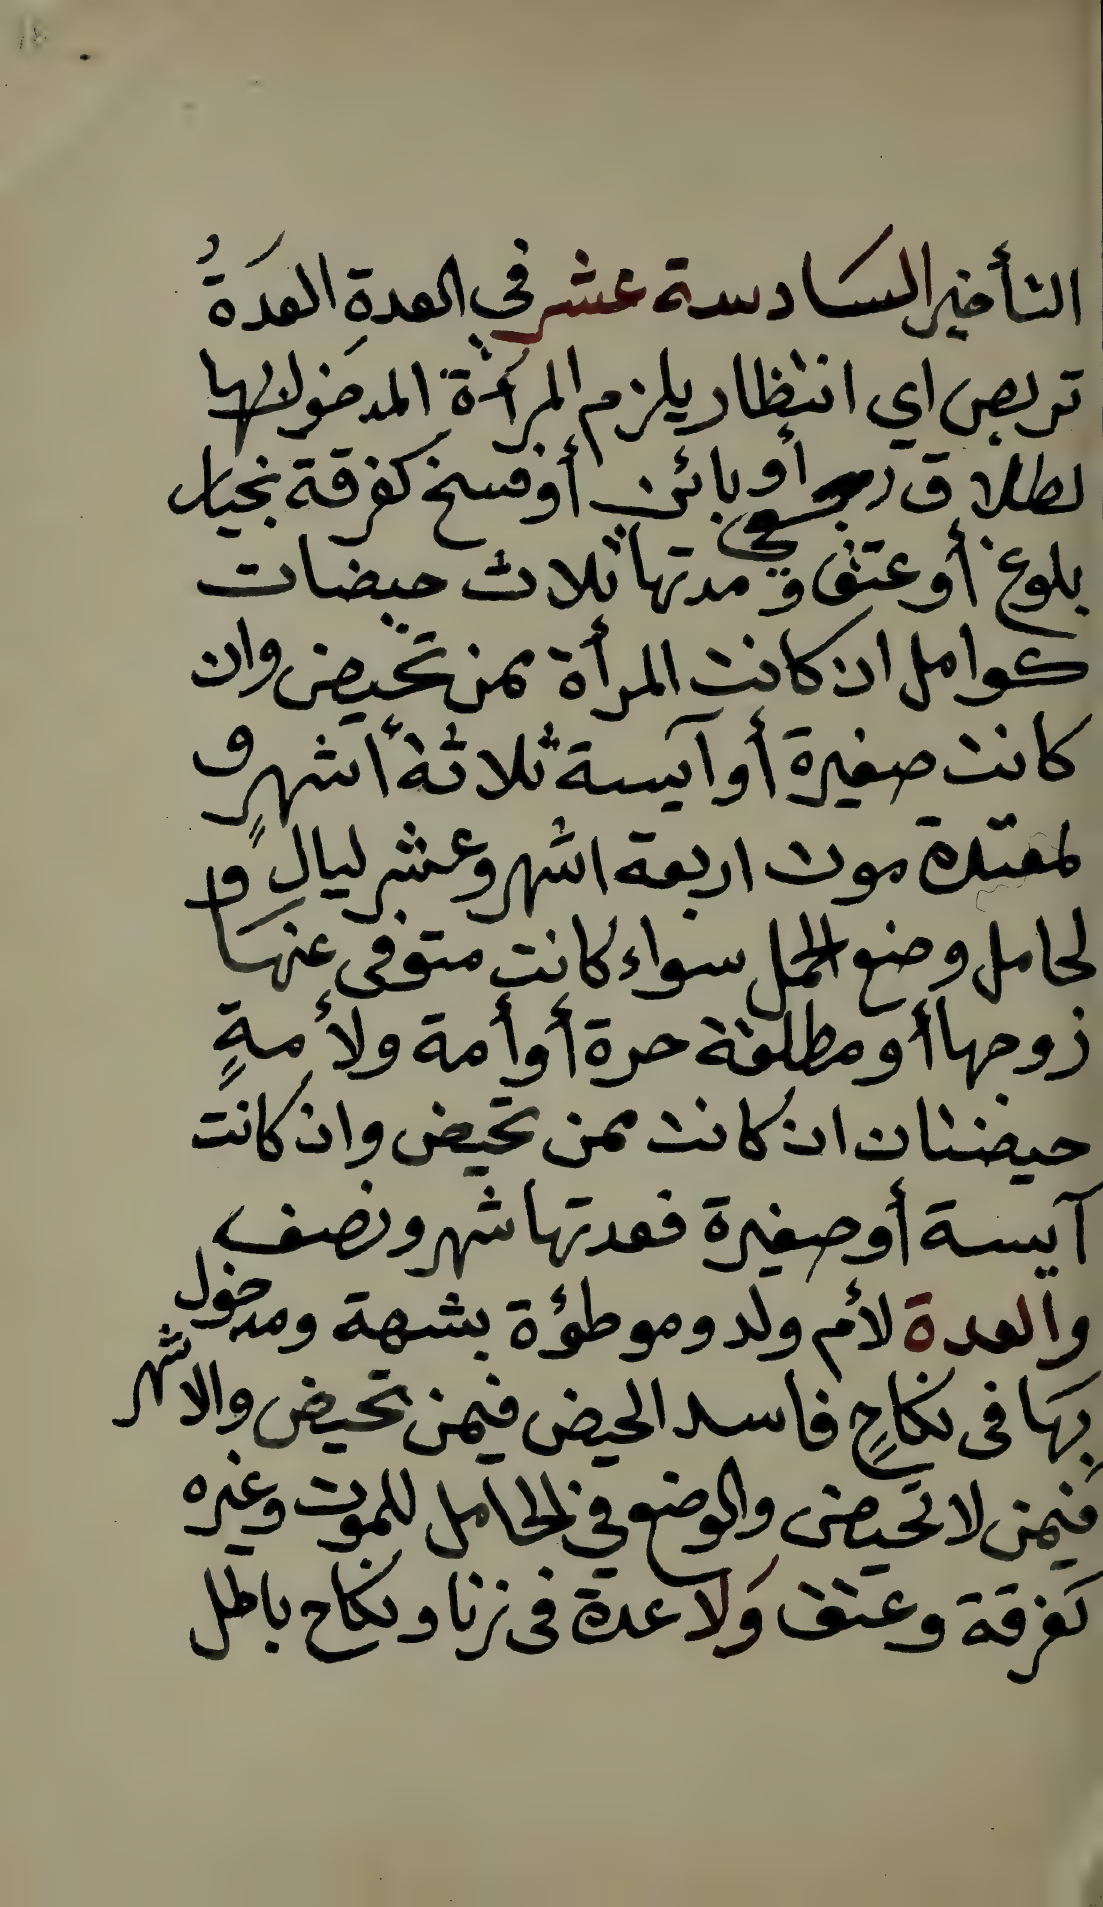 التأخير السادسة عشر في العدة العدَةُ
تربص اي انتظار يلزم المرأة المدخولا بها
لطلاق رجعي أو بائن أو فسخ كفرقة بخيار
بلوغ أو عتق ومدتها ثلاث حيضات
كوامل ان كانت المرأة ممن تحيض وان
كانت صغيرة أو آيسة ثلاثة أشهرٍ و
لمعتدة موت اربعة اشهر وعشر ليالٍ و
لحامل وضع الحمل سواء كانت متوفى عنها
زوجها أو مطلقة حرة أو أمة ولأمةٍ
حيضتان ان كانت ممن تحيض وان كانت
آيسة أو صغيرة فعدتها شهر ونصف
والعدة لأم ولد وموطؤة بشهة ومدخول
بها في نكاحٍ فاسد الحيض فيمن تحيض والاشهر
فيمن لا تحيض والوضع في الحامل للموت وغيره
كفرقة وعتق وَلا عدة في زنا ونكاح باطل